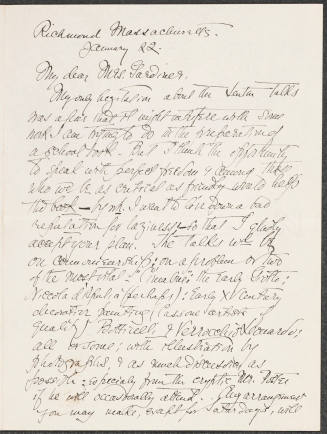 Richmond Massachusetts.
January 22.
My dear Mrs. Gardiner.
My only hesitation about the Lenten Talks
was a fear that it might interfere with some
work I am trying to do in the preparation of
a school book. But I think the opportunity
to speak with perfect freedom & among those
who wd be as critical as friendly would help
the book
reputation for laziness so that I gladly
accept your plan. The talks wd be
on connoisseurship; on a problem or two
of the most vital. "Cimabue"; the early Giotto;
Niccola d'Apulia (perhaps); Early XV Century
decorative painting (cassone
quality) Botticelli, Verrocchio, Leonardo;
all or some; with illustration by
photographs, & as much discussion as
possible: especially from the cryptic Mr. Potter
if he will occasionally attend. Any arrangement
you may make, except for Saturdays, will